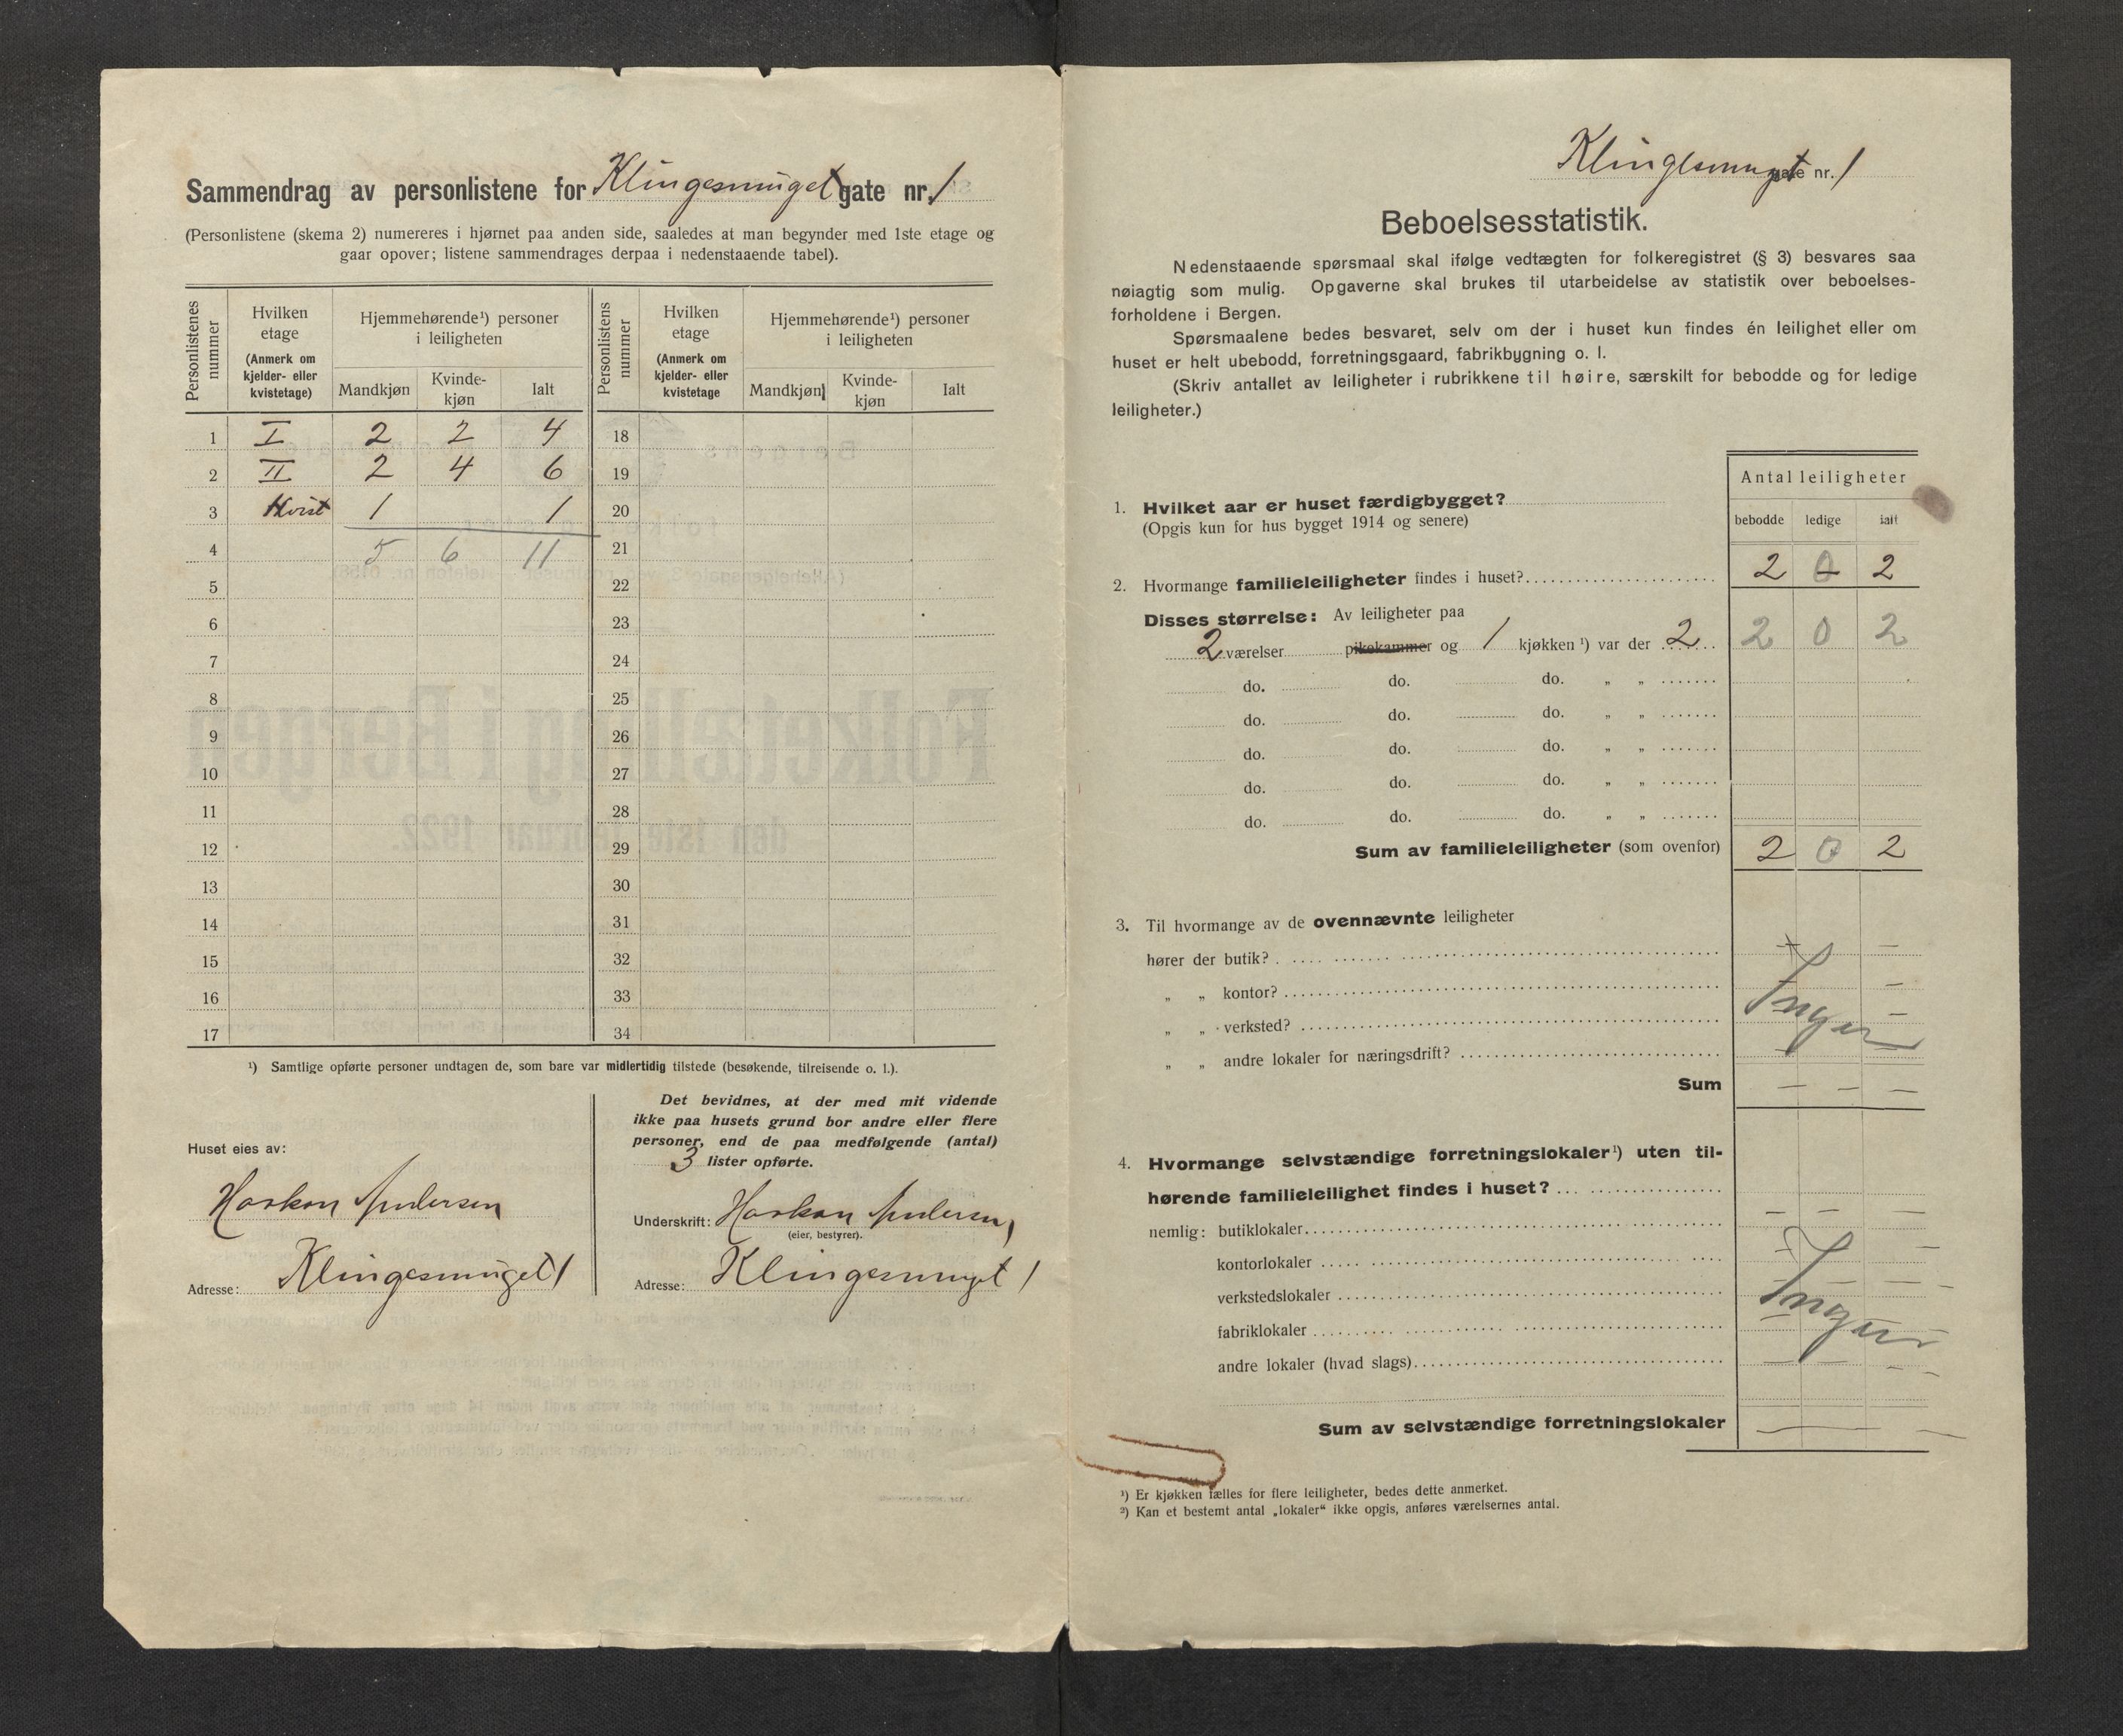 Sammendrag av personlistene for Klingesmuget gate nr. 1
(Personlistene (skema 2) numereres i hjørnet paa anden side, saaledes at man begynder med 1ste etage og
gaar opover; listene sammendrages derpaa i nedenstaaende tabel).
Personlistenes nummer | Hvilken etage (Anmerk om kjelder- eller kvistetage) | Hjemmehørende¹) personer i leiligheten | Personlistens nummer | Hvilken etage (Anmerk om kjelder- eller kvistetage | Hjemmehørende¹) personer i leiligheten
Mandkjøn | Kvinde-kjøn | Ialt | Mandkjøn | Kvinde-kjøn | Ialt
1 I 2 2 4 18
2 II 2 4 6 19
3 Kvist 1 1 20
4 5 6 11 21
5 22
6 23
7 24
8 25
9 26
10 27
11 28
12 29
13 30
14 31
15 32
16 33
17 34
¹) Samtlige opførte personer undtagen de, som bare var midlertidig tilstede (besøkende, tilreisende o. l.).
Huset eies av:
Haakon Andersen
Adresse: Klingesmuget 1
Det bevidnes, at der med mit vidende
ikke paa husets grund bor andre eller flere
personer, end de paa medfølgende (antal)
3 lister opførte.
Underskrift: Haakon Andersen,
(eier, bestyrer).
Adresse: Klingesmuget 1
Klingesmuget gate nr. 1
Beboelsesstatistik.
Nedenstaaende spørsmaal skal ifølge vedtægten for folkeregistret (§ 3) besvares saa
nøiagtig som mulig. Opgaverne skal brukes til utarbeidelse av statistik over beboelses-
forholdene i Bergen.
Spørsmaalene bedes besvaret, selv om der i huset kun findes én leilighet eller om
huset er helt ubebodd, forretningsgaard, fabrikbygning o. l.
(Skriv antallet av leiligheter i rubrikkene til høire, særskilt for bebodde og for ledige
leiligheter.)
Antal leiligheter
bebodde ledige ialt
1. Hvilket aar er huset færdigbygget?
(Opgis kun for hus bygget 1914 og senere)
2. Hvormange familieleiligheter findes i huset? 2 0 2
Disses størrelse: Av leiligheter paa
2 værelser pikekammer og 1 kjøkken ¹) var der 2 2 0 2
do. do. do. „ „
do. do. do. „ „
do. do. do. „ „
do. do. do. „ „
do. do. do. „ „
Sum av familieleiligheter (som ovenfor) 2 0 2
3. Til hvormange av de ovennævnte leiligheter
hører der butik? — —
„ „ kontor? —
Ingen
„ „ verksted? —
„ „ andre lokaler for næringsdrift? — —
Sum — — —
4. Hvormange selvstændige forretningslokaler¹) uten til-
hørende familieleilighet findes i huset? — — —
nemlig: butiklokaler — —
kontorlokaler — — —
Ingen
verkstedslokaler
fabriklokaler
andre lokaler (hvad slags) — — —
Sum av selvstændige forretningslokaler — — —
¹) Er kjøkken fælles for flere leiligheter, bedes dette anmerket.
²) Kan et bestemt antal „lokaler“ ikke opgis, anføres værelsernes antal.